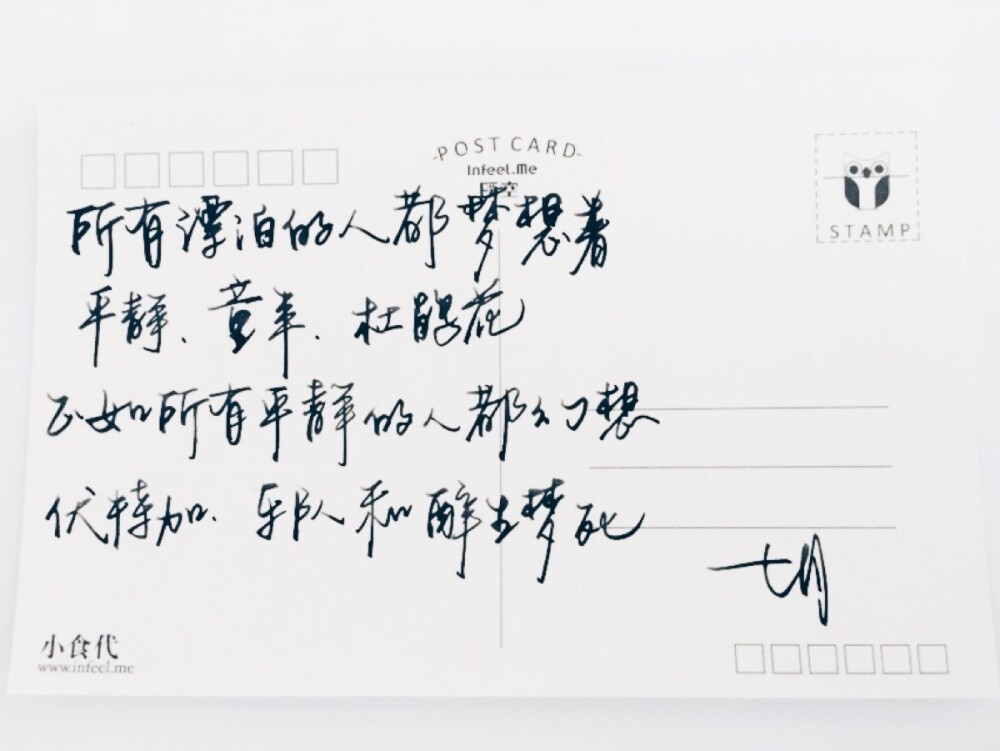 -POST CARD-
Infeel.Me
STAMP
所有漂泊的人都梦想着
平静、童年、杜鹃花
正如所有平静的人都幻想
伏特加、乐队和醉生梦死
七月
小食代
www.infeel.me